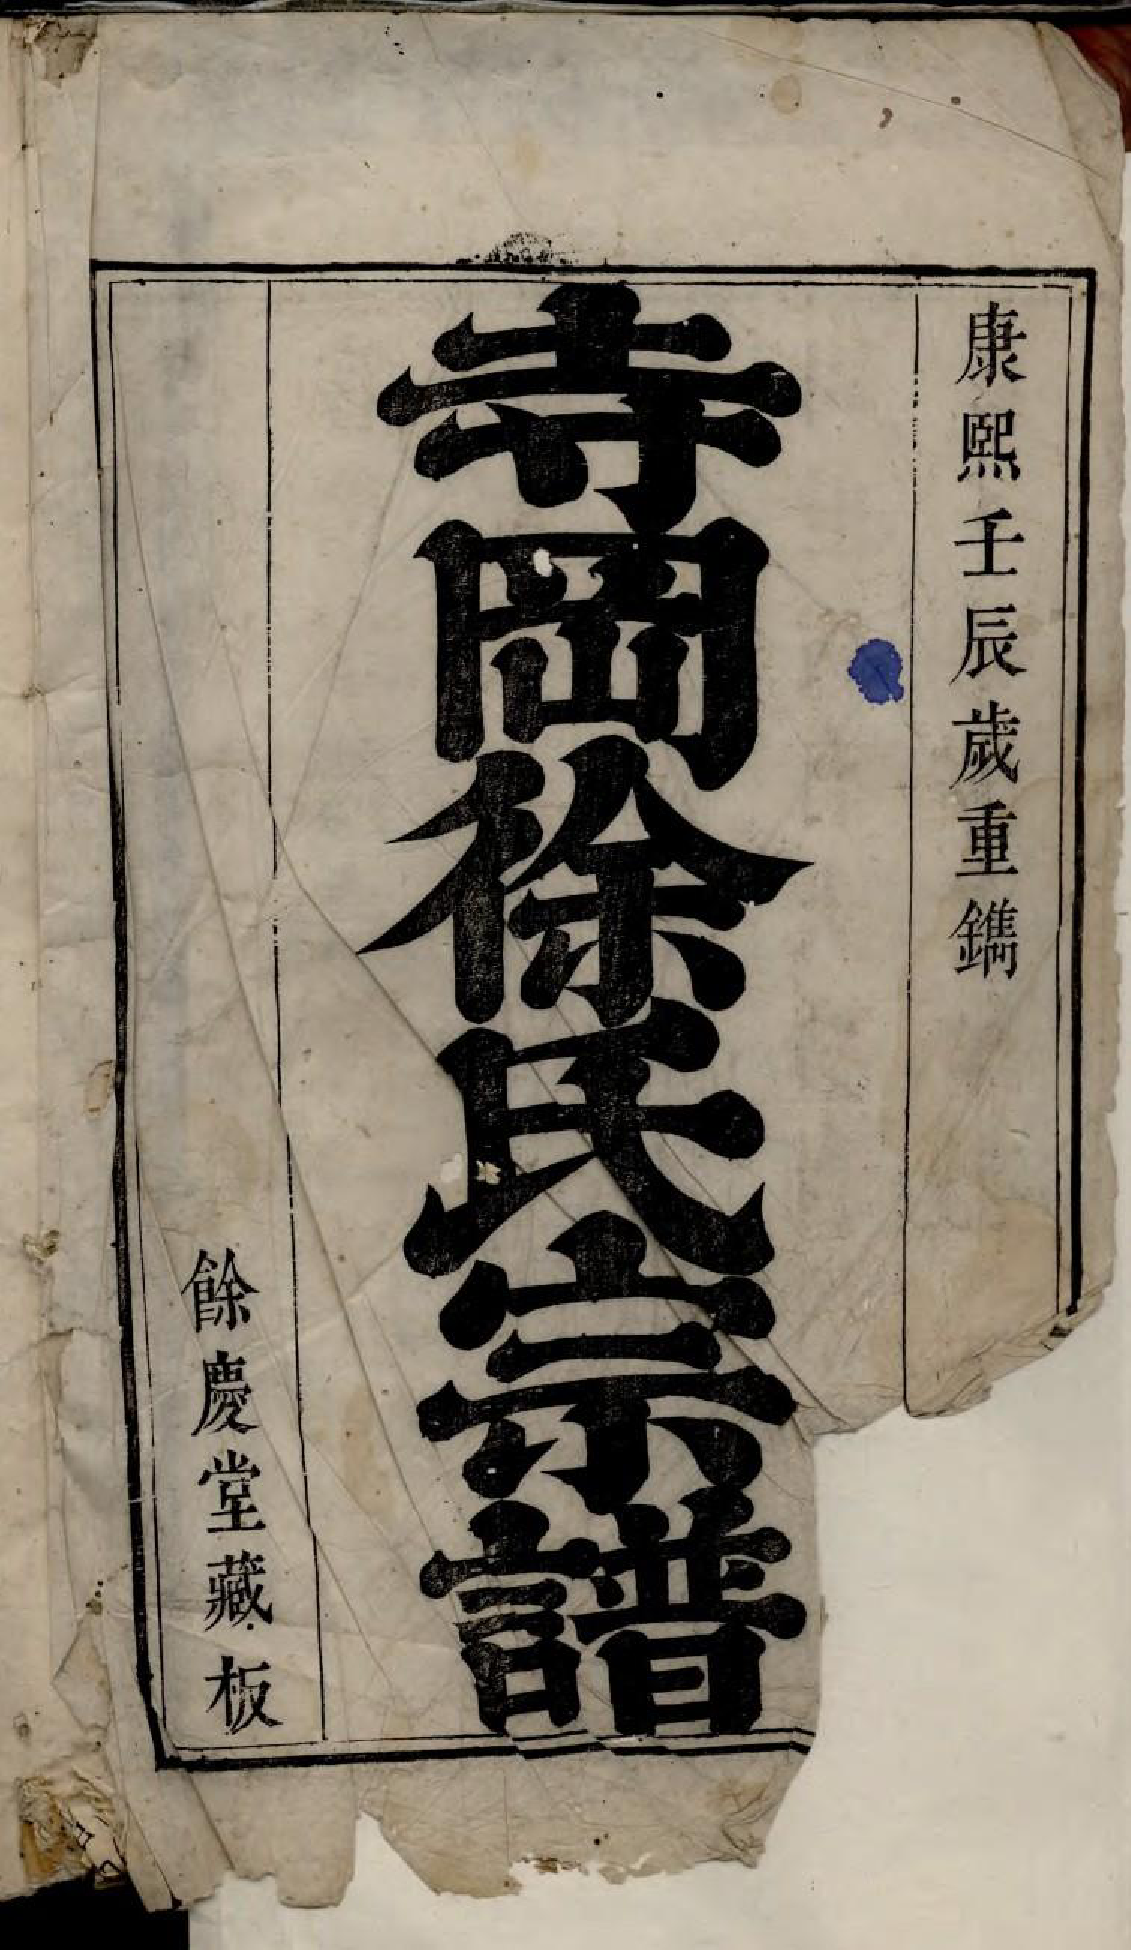 康熙壬辰歲重鐫
寺岡徐氏宗譜
餘慶堂藏板